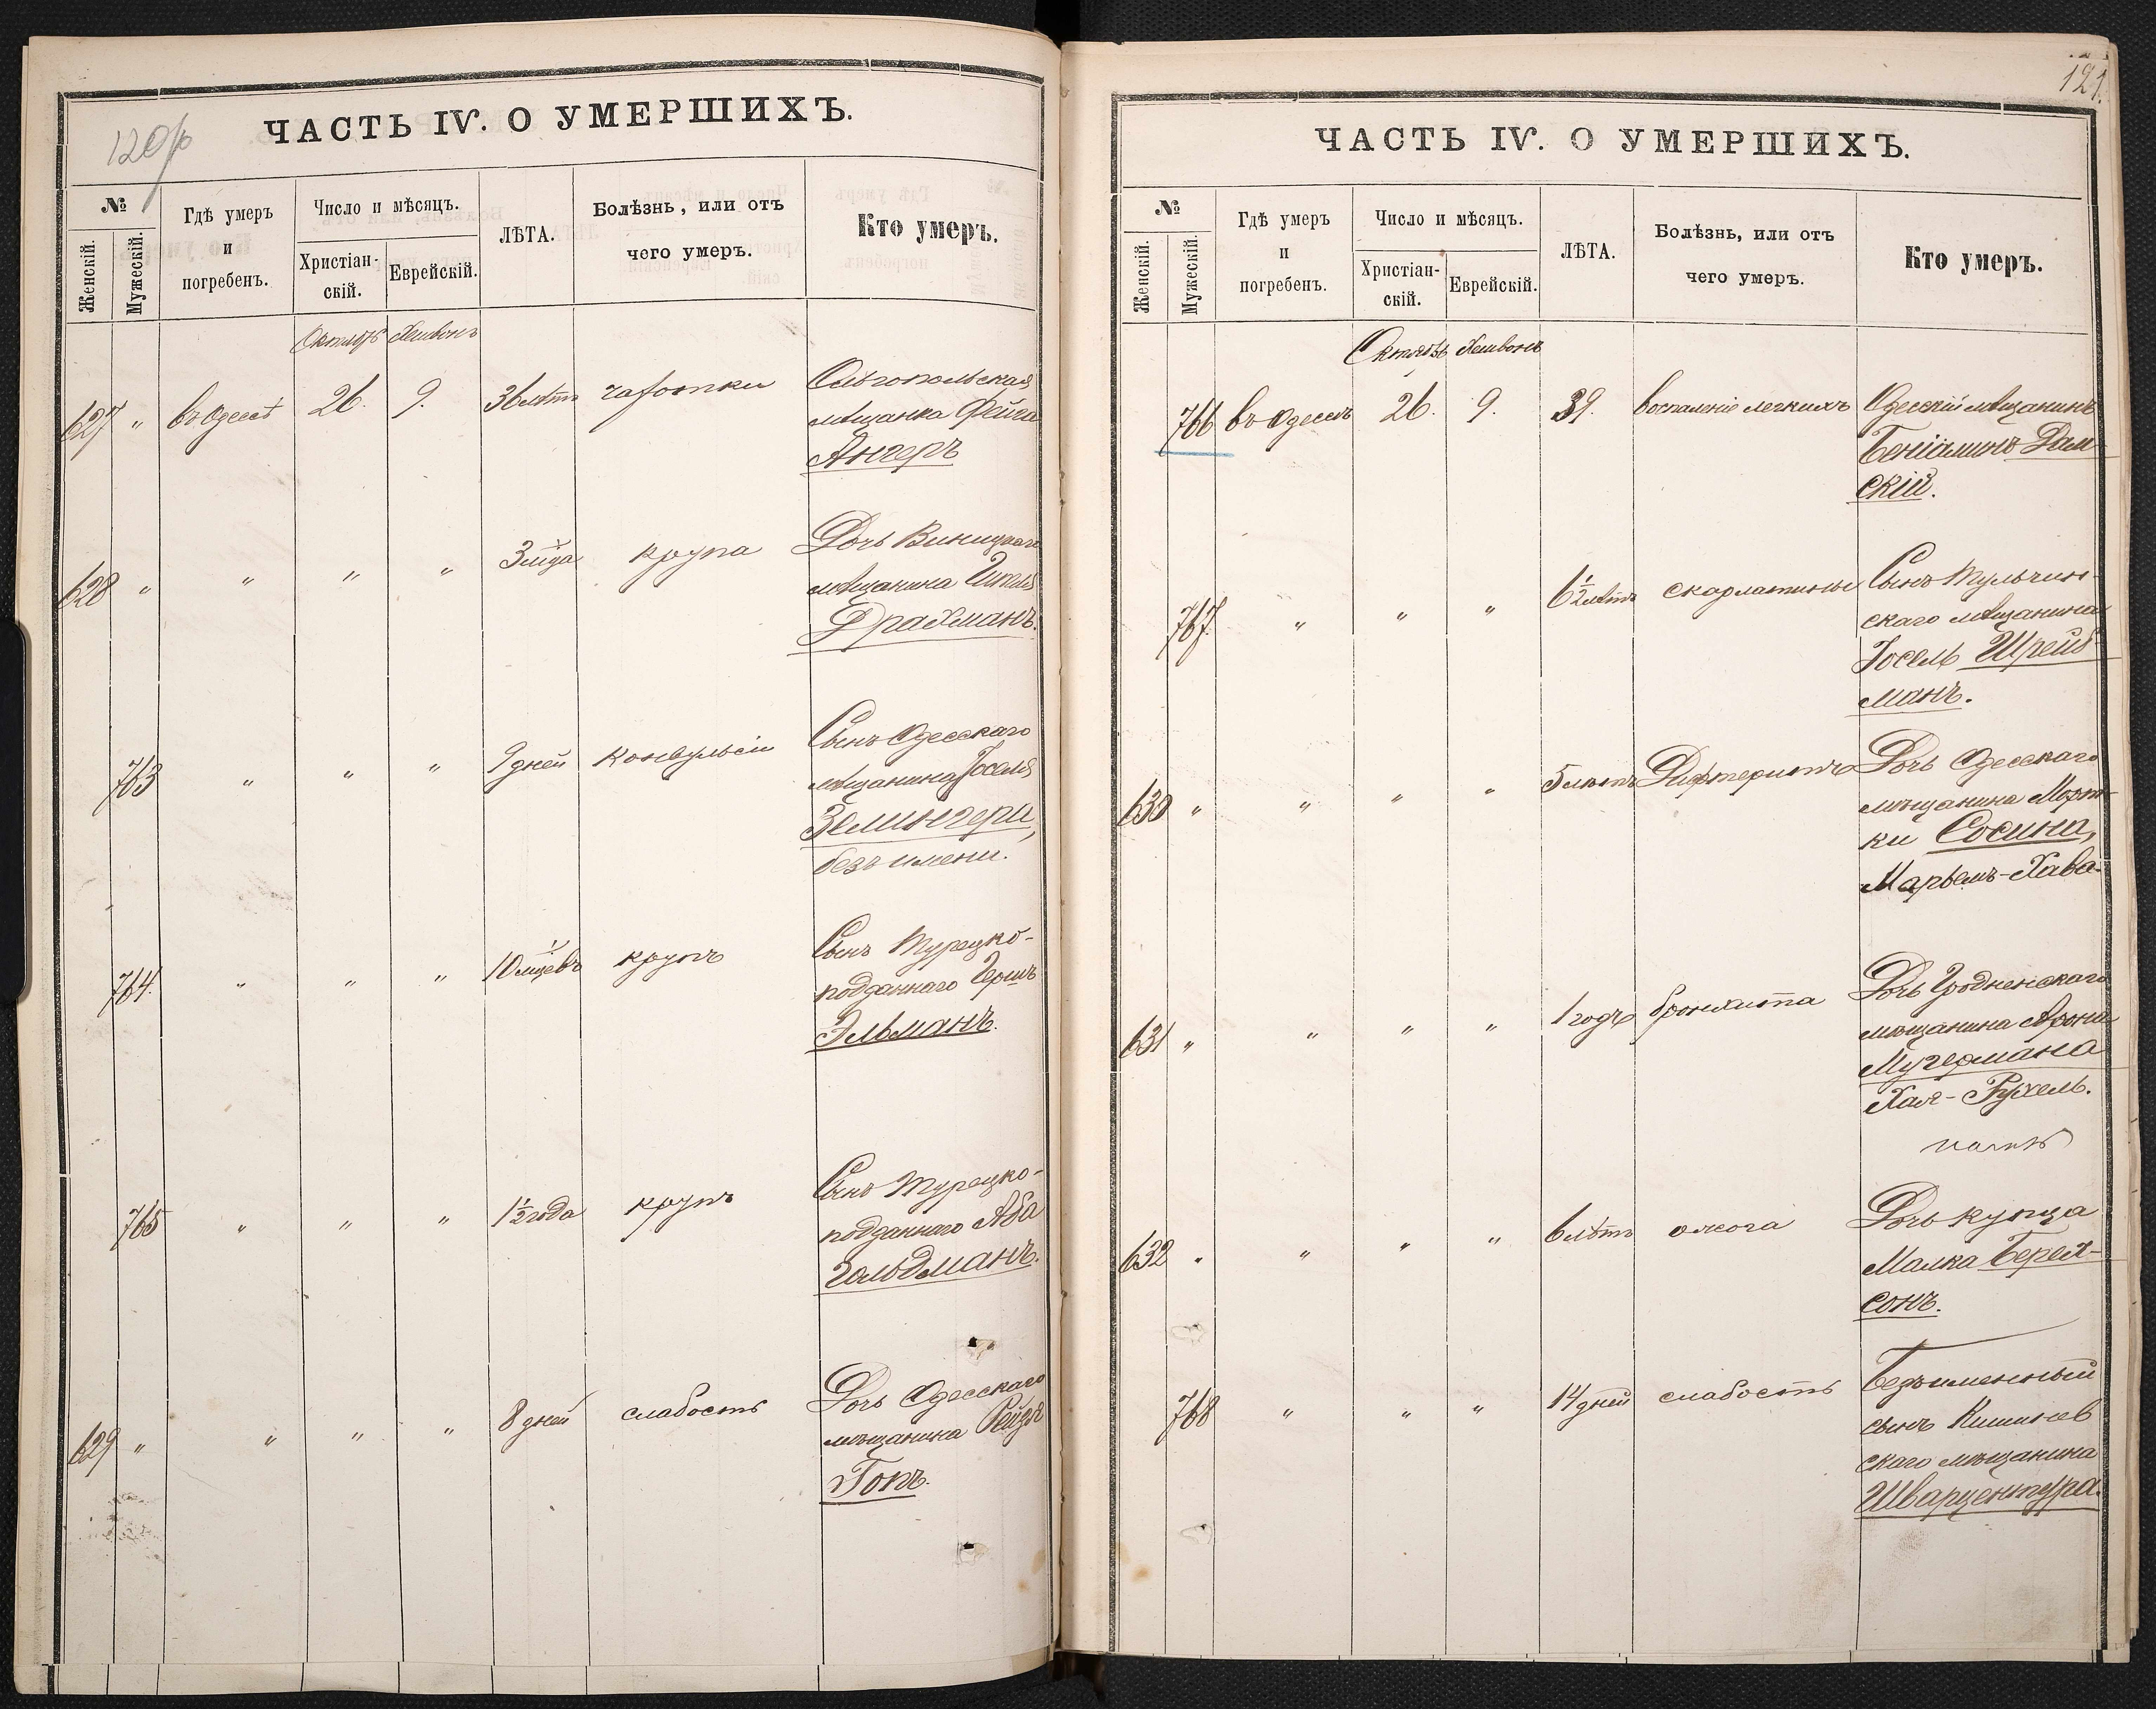 120/об
ЧАСТЬ IV. О УМЕРШИХЪ.
№
Женскій.
Мужескій.
Гдѣ умеръ
и
погребенъ.
Число и мѣсяцъ.
Христіан-
скій.
Еврейскій.
ЛѢТА.
Болѣзнь, или отъ
чего умеръ.
Кто умеръ.
Октябрь Хешвонъ
627 " въ Одессѣ 26. 9. 36 лѣтъ чахотки Ольгопольская
мѣщанка Фейга
Ангеръ
628 " " " " 3 м-ца крупа Дочь Виницкаго
мѣщанина
Драхманъ.
763 " " " 9 дней конвульсіи Сынъ Одесскаго
мѣщанина Іоселя
Землингери,
безъ имени.
764. " " " 10 м-цевъ крупъ Сынъ Турецко-
подданнаго Гершъ
Эльманъ.
765 " " " 1½ года крупъ Сынъ Турецко-
подданнаго Аба
Гольдманъ.
629 " " " " 8 дней слабость Дочь Одесскаго
мѣщанина Рейзя
Гопъ.
121.
ЧАСТЬ IV. О УМЕРШИХЪ.
№
Женскій.
Мужескій.
Гдѣ умеръ
и
погребенъ.
Число и мѣсяцъ.
Христіан-
скій.
Еврейскій.
ЛѢТА.
Болѣзнь, или отъ
чего умеръ.
Кто умеръ.
Октябрь Хешвонъ
766 въ Одессѣ 26. 9. 39. воспаленіе легкихъ Одесскій мѣщанинъ
Беніаминъ Дам-
скій.
767. " " " 6½ лѣтъ скарлатины Сынъ Тульчин-
скаго мѣщанина
Іосель Шрейб-
манъ.
630 " " " " 5 лѣтъ Дифтеритъ Дочь Одесскаго
мѣщанина Морт-
ки Сосина,
Марьемъ-Хава.
631 " " " " 1 годъ бронхита Дочь Гродненскаго
мѣщанина Арона
Мучермана
Хая-Рухель.
632 " " " " 6 лѣтъ ожога Дочь купца
Малка Берел-
сонъ.
768 " " " 14 дней слабость Безъименный
сынъ Кишинев
скаго мѣщанина
Шварцентура.